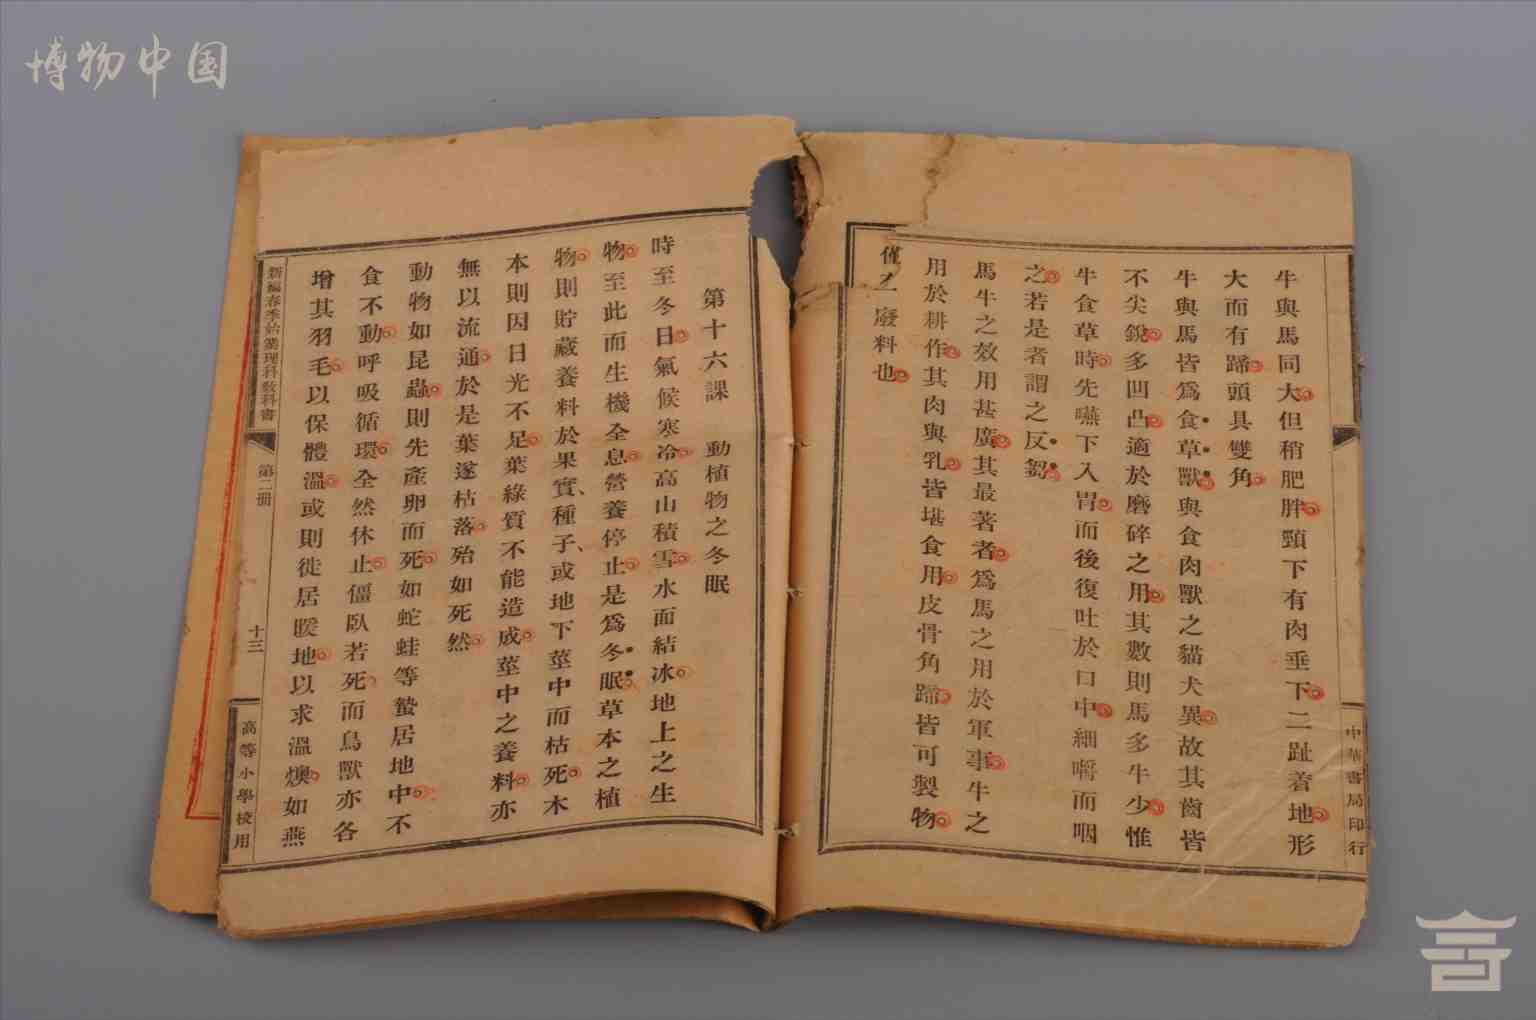 博物中国
牛與馬同大但稍肥胖頸下有肉垂下二趾着地形
大而有蹄頭具雙角
牛與馬皆爲食草獸與食肉獸之貓犬異故其齒皆
不尖銳多凹凸適於磨碎之用其數則馬多牛少惟
牛食草時先嚥下入胃而後復吐於口中細嚼而咽
之若是者謂之反芻
馬牛之效用甚廣其最著者爲馬之用於軍事牛之
用於耕作其肉與乳皆堪食用皮骨角蹄皆可製物
僅 廢料也
中華書局印行
第十六課 動植物之冬眠
時至冬日氣候寒冷高山積雪水面結冰地上之生
物至此而生機全息營養停止是爲冬眠草本之植
物則貯藏養料於果實、種子、或地下莖中而枯死木
本則因日光不足葉綠質不能造成莖中之養料亦
無以流通於是葉遂枯落殆如死然
動物如昆蟲則先產卵而死如蛇蛙等蟄居地中不
食不動呼吸循環全然休止僵臥若死而鳥獸亦各
增其羽毛以保體溫或則徙居暖地以求溫燠如燕
新編春季始業理科教科書
第二册
十三
高等小學校用